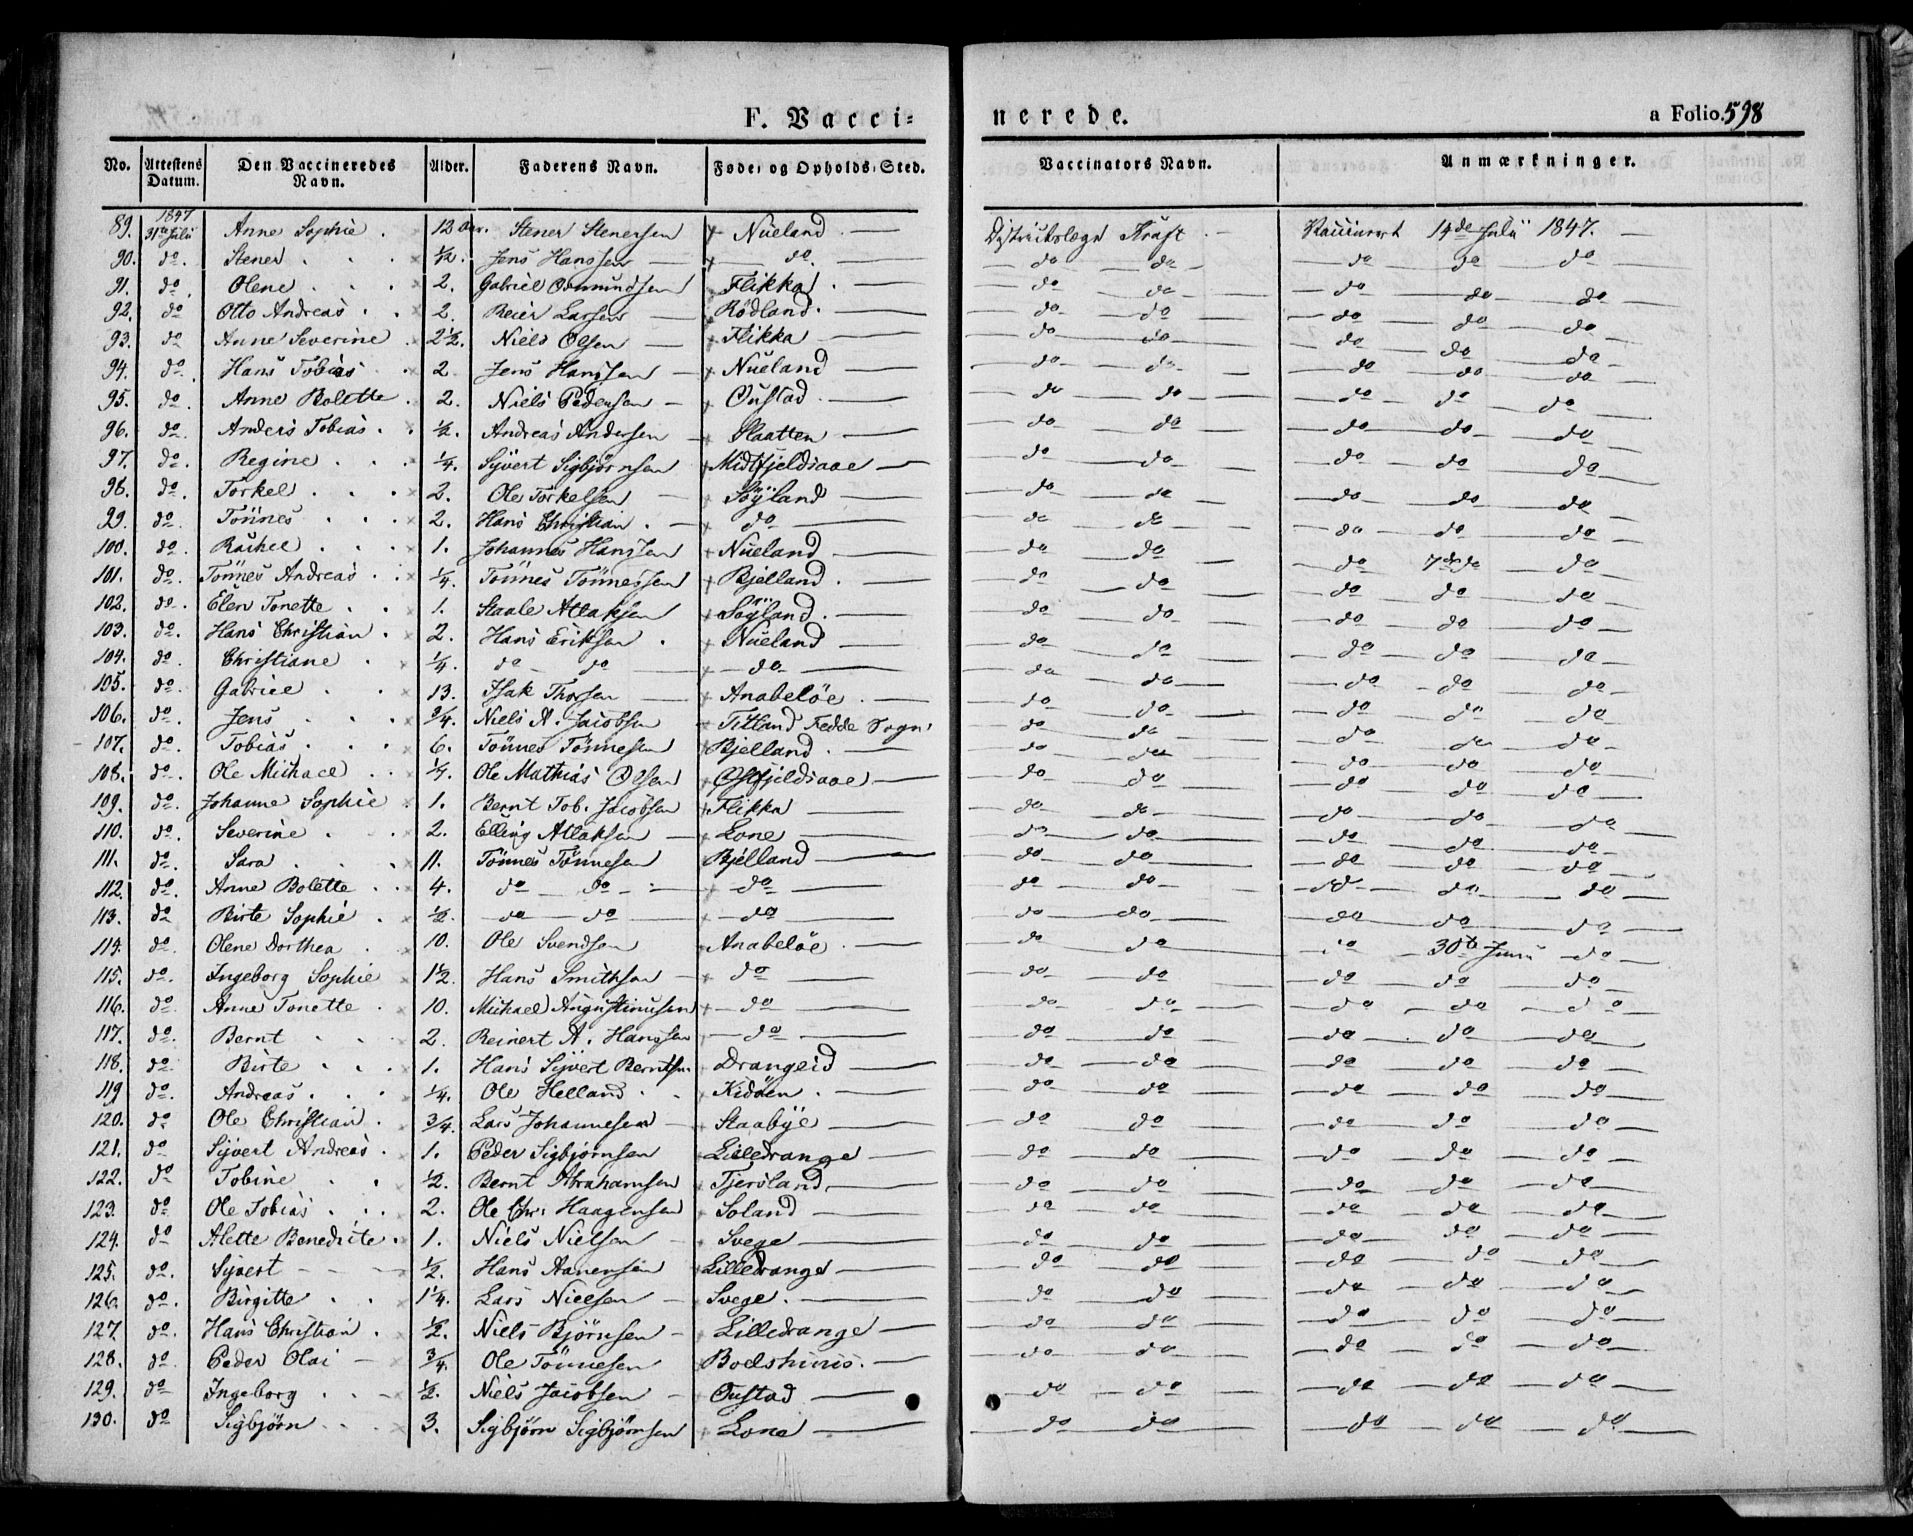 F. Vacci=
nerede.
a Folio. 598
No. Attestens Datum. Den Vaccineredes Navn. Alder. Faderens Navn. Føde- og Opholds-Sted. Vaccinators Navn. Anmærkninger.
1847
89. 31te Juli Anne Sophie 12 Aar. Stener Stenersen Nueland Distriktslæge Kraft 14de Julii 1847.
90. do Stener 1/2. Jens Hanssen do do do do do do
91. do Olene 2. Gabriel Osmundsen Flikka do do do do do
92. do Otto Andreas 2. Reier Larsen Rødland do do do do do
93. do Anne Severine 2 1/2. Niels Olsen Flikka do do do do do
94. do Hans Tobias 2 Jens Hanssen Nueland do do do do do
95. do Anne Bolette 2. Niels Pedersen Oustad do do do do do
96. do Anders Tobias 1/2. Andreas Andersen Slaatten do do do do do
97. do Regine 1/4. Syvert Sigbjørnsen Midtfjeldsaae do do do do do
98. do Torkel 2. Ole Torkelsen Söyland do do do do do
99. do Tønnes 2. Hans Christian do do do do do do
100. do Rachel 1. Johannes Hanssen Nueland do do do 7de do do
101. do Tønnes Andreas 1/4. Tønnes Tønnessen Bjelland do do do do do
102. do Elen Tonette 1. Staale Atlaksen Söyland do do do do do
103. do Hans Christian 2. Hans Eriksen Nueland do do do do do
104. do Christiane 1/4. do do do do do do do do
105. do Gabriel 13. Isak Thorsen Anabeløe do do do do do
106. do Jens 3/4. Niels A. Jacobsen Titland Fedde Sogn do do do do do
107. do Tobias 6. Tønnes Tønnesen Bjelland do do do do do
108. do Ole Michael 1/4. Ole Mathias Olsen Østfjeldsaae do do do do do
109. do Johanne Sophie 1. Bernt Tob. Jacobsen Flikka do do do do do
110. do Severine 2. Elling Atlaksen Lone do do do do do
111. do Sara 11. Tønnes Tønnesen Bjelland do do do do do
112. do Anne Bolette 4. do do do do do do do do
113. do Birte Sophie 1/2. do do do do do do do do
114. do Olene Dorthea 10. Ole Svendsen Anabeløe do do do 30te Juni do
115. do Ingeborg Sophie 1 1/2. Hans Smithsen do do do do do do
116. do Anne Tonette 10. Michael Augustinussen do do do do do do
117. do Bernt 2. Reinert A. Hanssen do do do do do do
118. do Birte 1. Hans Syvert Berntsen Drangeid do do do do do
119 do Andreas 1/4. Ole Helland Kidøen do do do do do
120. do Ole Christian 3/4. Lars Johannesen Staabye do do do do do
121. do Syvert Andreas 1. Peder Sigbjørnsen Lilledrange do do do do do
122. do Tobine 1/2. Bernt Abrahamsen Tjersland do do do do do
123. do Ole Tobias 2. Ole Chr. Haagensen Soland do do do do do
124. do Alette Benedicte 1. Niels Nielsen Svege do do do do do
125. do Syvert 1/2. Hans Aanensen Lilledrange do do do do do
126. do Birgitte 1 1/4. Lars Nielsen Svege do do do do do
127. do Hans Christian 1/2. Niels Bjørnsen Lilledrange do do do do do
128. do Peder Olai 3/4. Ole Tønnesen do do do do do
129. do Ingeborg 1/2. Niels Jacobsen Oustad do do do do do
130. do Sigbjørn 3. Sigbjørn Sigbjørnsen Lone do do do do do